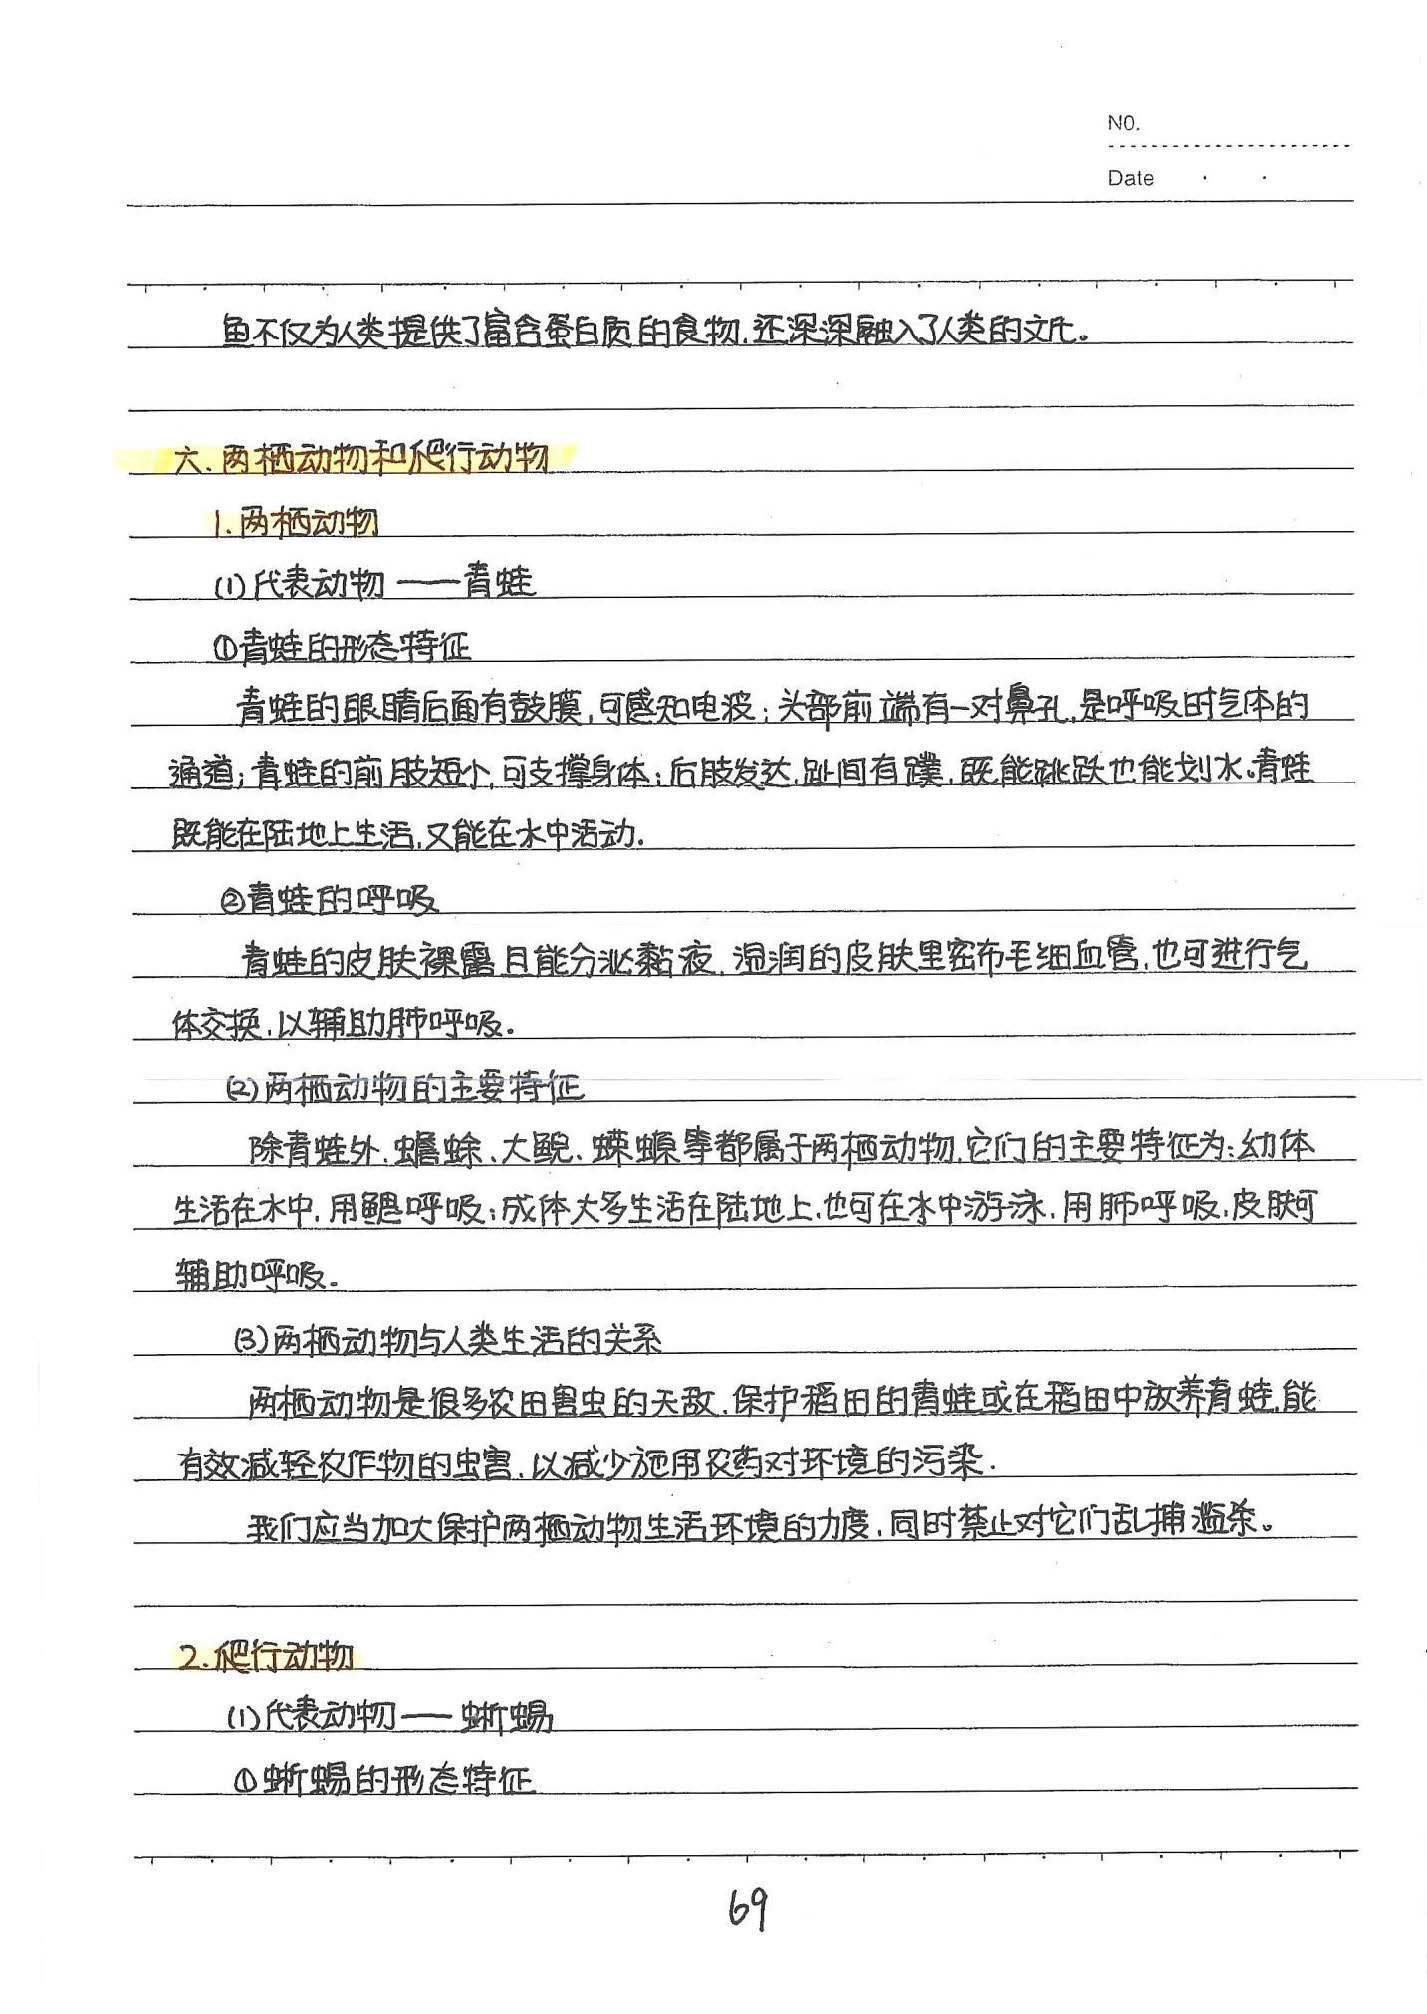 NO.
Date
鱼不仅为人类提供了富含蛋白质的食物,还深深融入了人类的文化。
六、两栖动物和爬行动物
1.两栖动物
(1)代表动物——青蛙
①青蛙的形态特征
青蛙的眼睛后面有鼓膜,可感知电波;头部前端有一对鼻孔,是呼吸时气体的
通道;青蛙的前肢短小,可支撑身体;后肢发达,趾间有蹼,既能跳跃也能划水。青蛙
既能在陆地上生活,又能在水中活动.
②青蛙的呼吸
青蛙的皮肤裸露且能分泌黏液,湿润的皮肤里密布毛细血管,也可进行气
体交换,以辅助肺呼吸.
(2)两栖动物的主要特征
除青蛙外,蟾蜍、大鲵、蝾螈等都属于两栖动物,它们的主要特征为:幼体
生活在水中,用鳃呼吸;成体大多生活在陆地上,也可在水中游泳,用肺呼吸,皮肤可
辅助呼吸.
(3)两栖动物与人类生活的关系
两栖动物是很多农田害虫的天敌,保护稻田的青蛙或在稻田中放养青蛙,能
有效减轻农作物的虫害,以减少施用农药对环境的污染.
我们应当加大保护两栖动物生活环境的力度,同时禁止对它们乱捕滥杀。
2.爬行动物
(1)代表动物——蜥蜴
①蜥蜴的形态特征
69